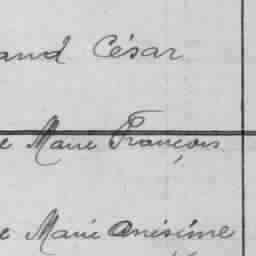 and César
e Marie François
e Marie Onésime